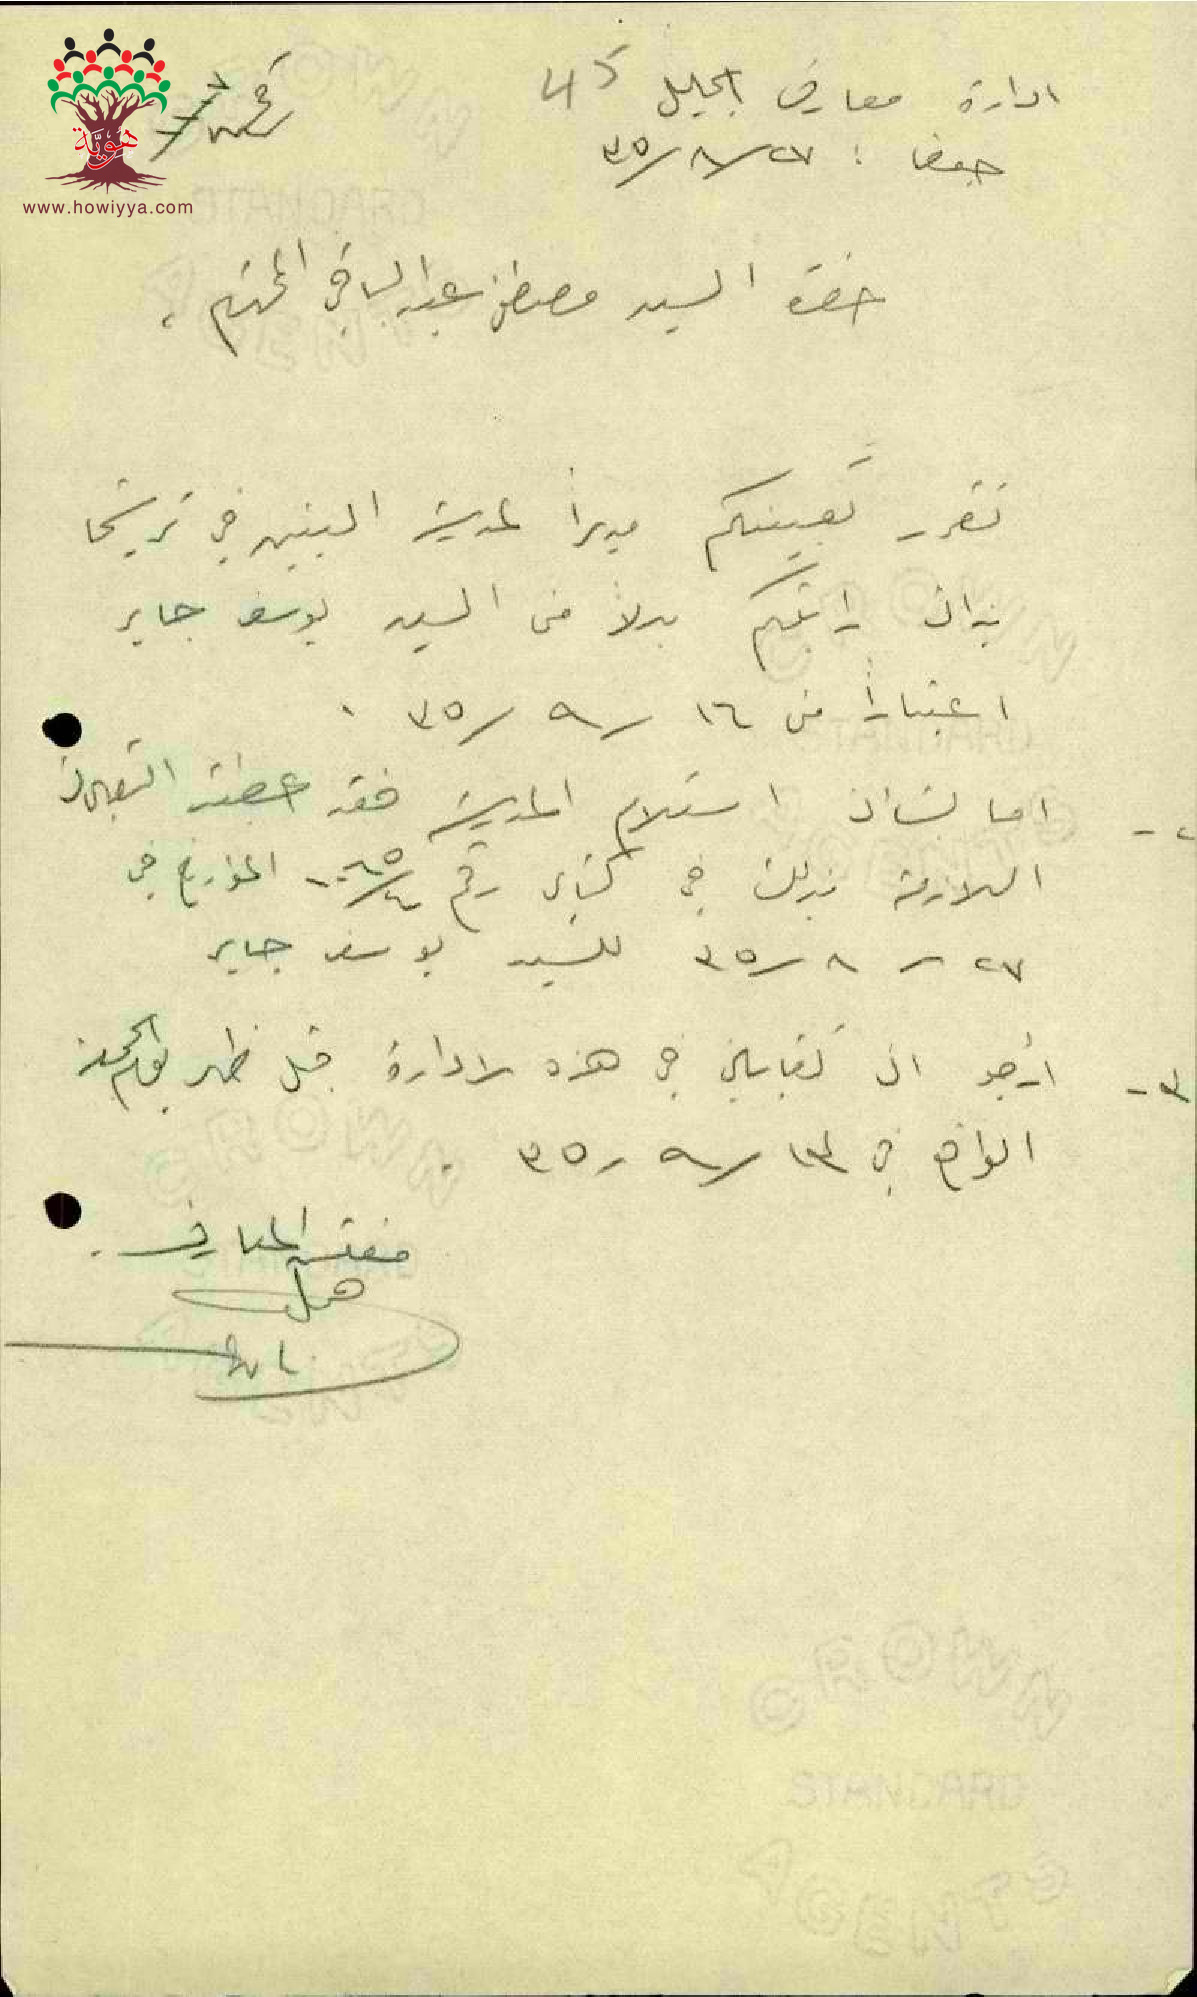 هوية
www.howiyya.com
ادارة معارف الجليل 45
حيفا : ٢٧/٨/٣٥
حضرة السيد مصطفى عبد الباقي المحترم ،
تقرر تعيينكم مديراً لمدرسة البنين في ترشيحا
بذات راتبكم بدلاً من السيد يوسف جابر
اعتباراً من ١٦/٩/٣٥ .
٢- اما بشأن استلام المدرسة فقد اعطيت التعليمات
اللازمة بذلك في كتابي رقم المؤرخ في
٢٧/٨/٣٥ للسيد يوسف جابر
٣- ارجو ان تقابلني في هذه الادارة قبل ظهر يوم الجمعة
الواقع في ١٣/٩/٣٥ .
مفتش المعارف .
CROWN
STANDARD
AGENTS